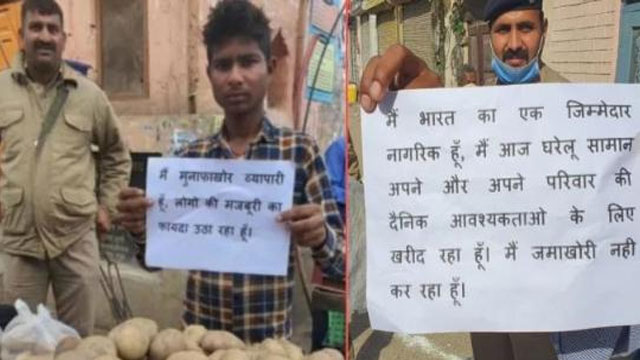 मैं मुनाफाखोर व्यापारी
हूँ, लोगो की मजबूरी का
फायदा उठा रहा हूँ।
मैं भारत का एक जिम्मेदार
नागरिक हूँ, मैं आज घरेलू सामान
अपने और अपने परिवार की
दैनिक आवश्यकताओ के लिए
खरीद रहा हूँ। मैं जमाखोरी नही
कर रहा हूँ।